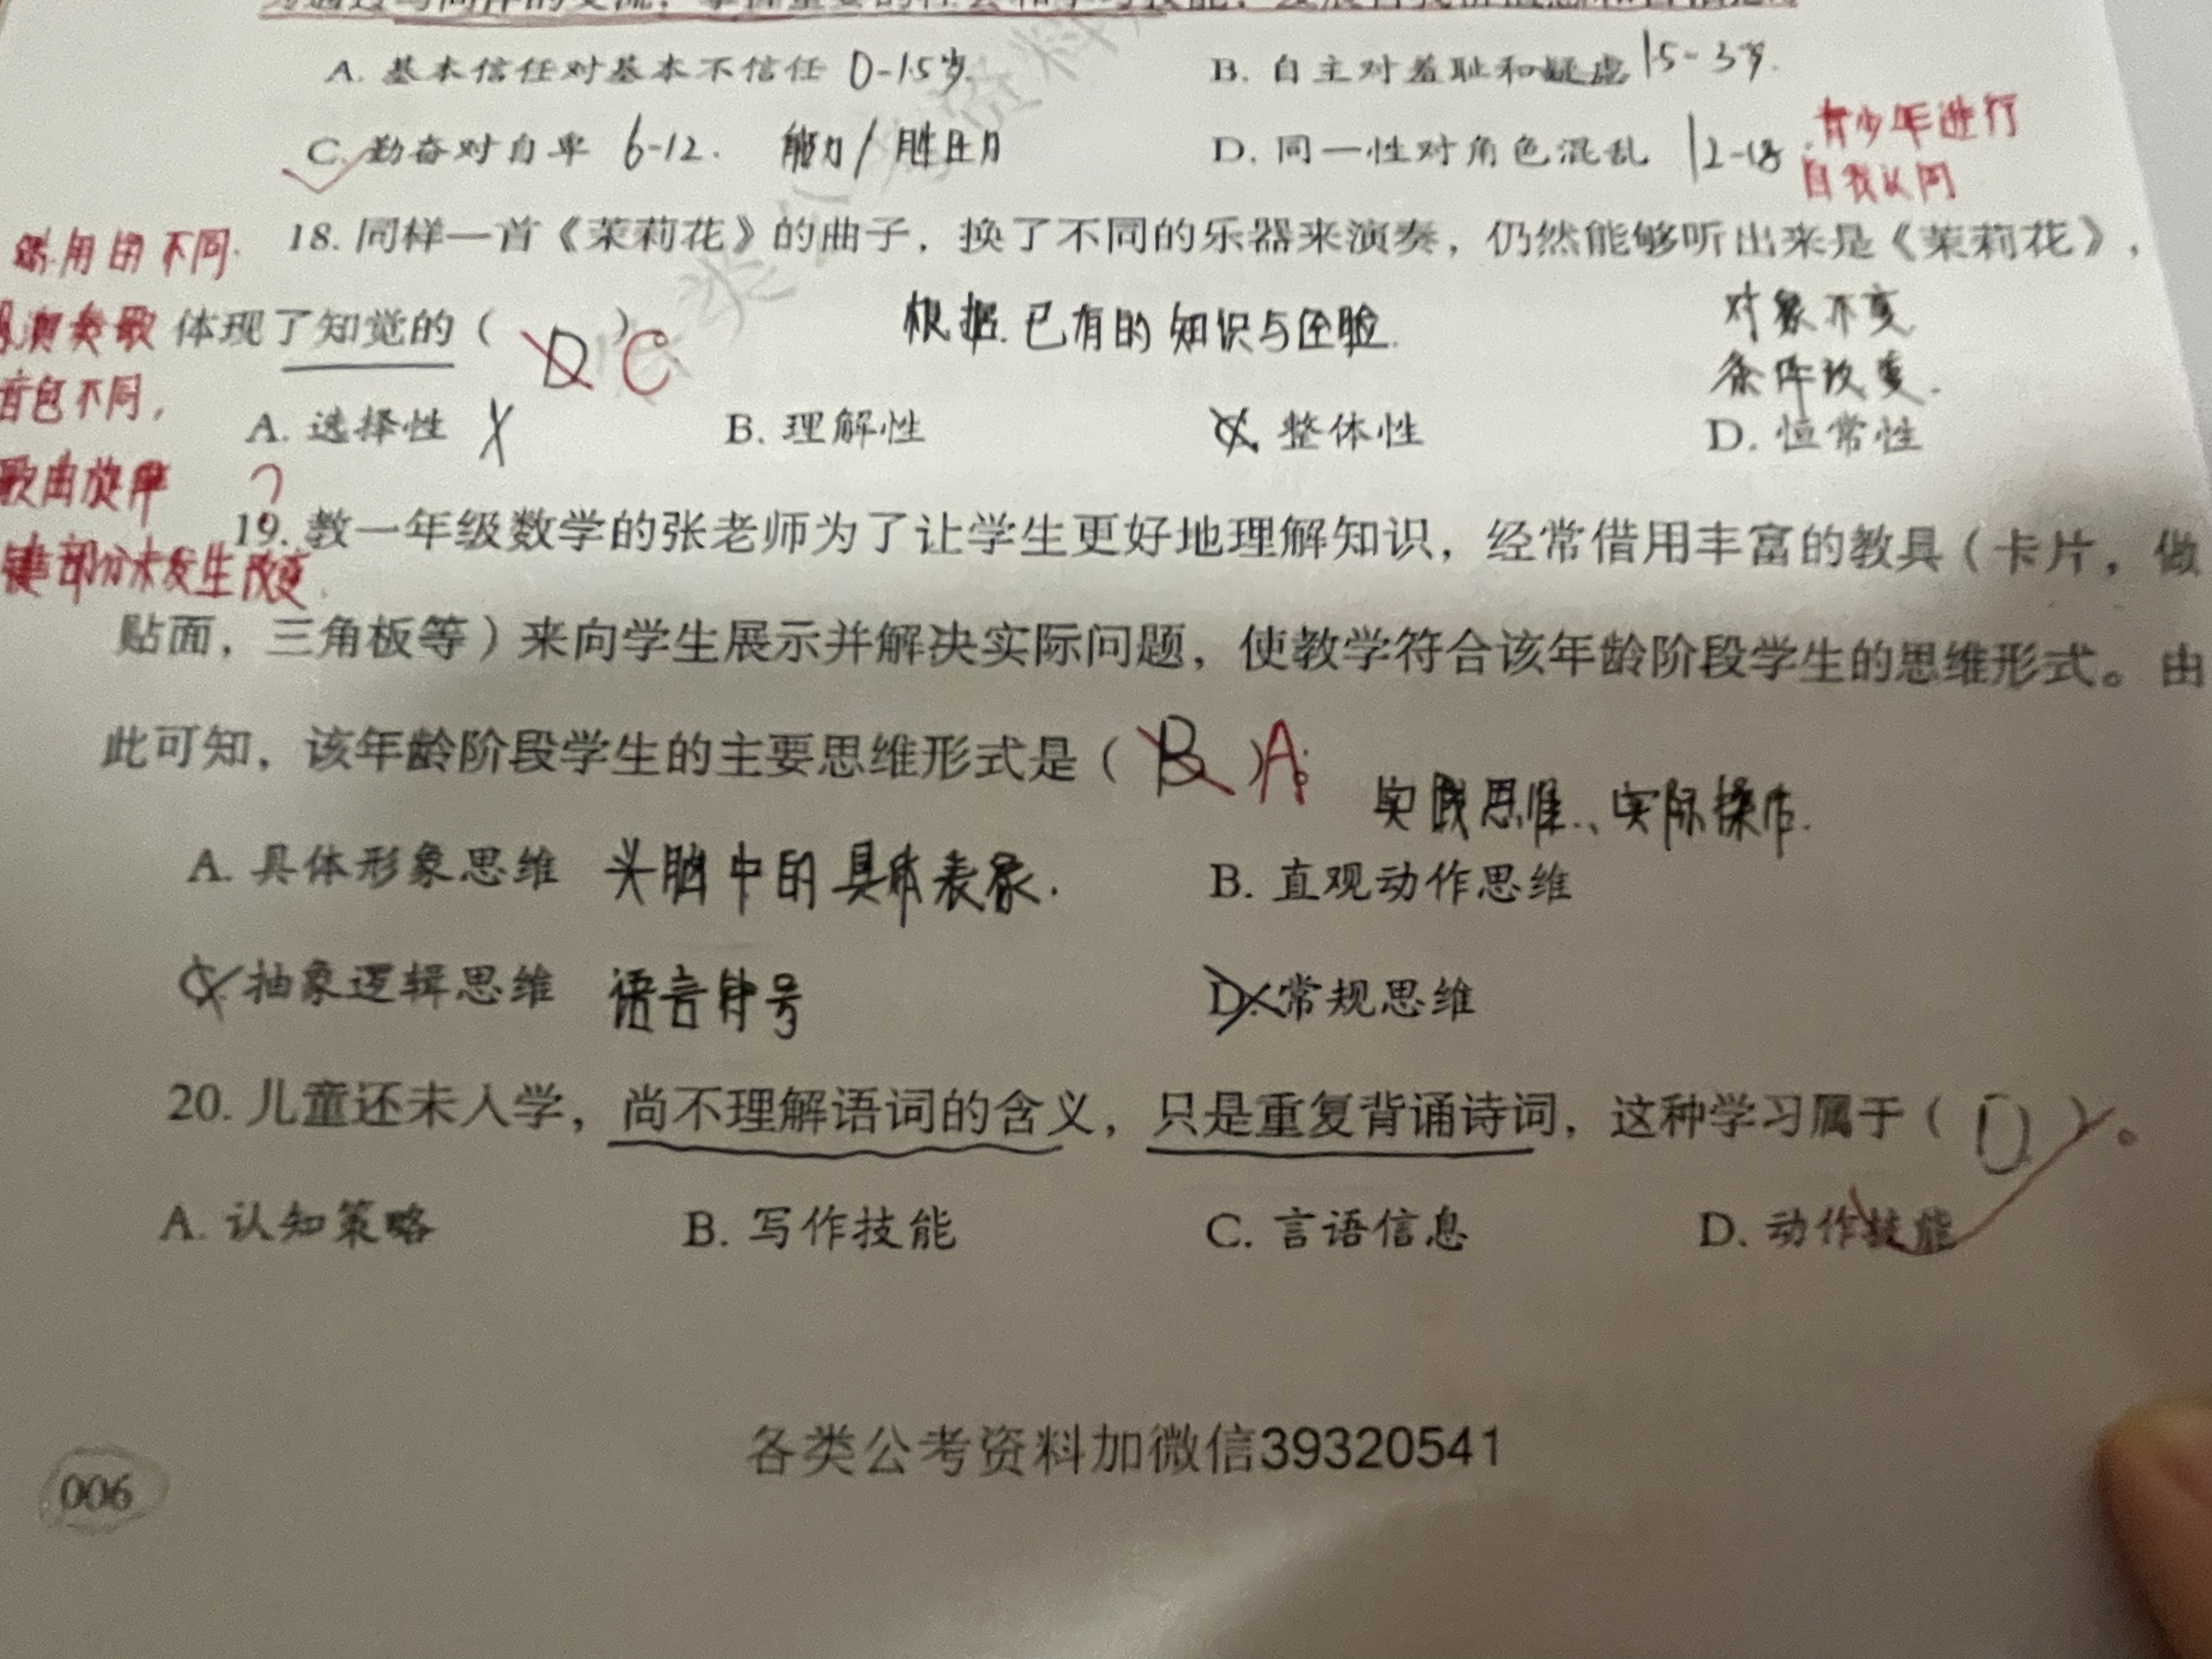 A. 基本信任对基本不信任 0-1.5岁.
B. 自主对羞耻和疑虑 1.5-3岁.
C. 勤奋对自卑 6-12. 能力/胜任力
D. 同一性对角色混乱 12-18. 青少年进行
自我认同
18. 同样一首《茉莉花》的曲子，换了不同的乐器来演奏，仍然能够听出来是《茉莉花》，
用的不同.
演奏歌
音色不同，
歌曲旋律
键部分未发生改变.
体现了知觉的（ D ） C。
根据已有的知识与经验.
对象不变
条件改变.
A. 选择性 X
B. 理解性
C. 整体性
D. 恒常性
?
19. 教一年级数学的张老师为了让学生更好地理解知识，经常借用丰富的教具（卡片，做
贴面，三角板等）来向学生展示并解决实际问题，使教学符合该年龄阶段学生的思维形式。由
此可知，该年龄阶段学生的主要思维形式是（ B ）A。
实践思维、实际操作.
A. 具体形象思维 头脑中的具体表象.
B. 直观动作思维
C. 抽象逻辑思维 语言符号
D. 常规思维
20. 儿童还未入学，尚不理解语词的含义，只是重复背诵诗词，这种学习属于（ D ）。
A. 认知策略
B. 写作技能
C. 言语信息
D. 动作技能
各类公考资料加微信39320541
006